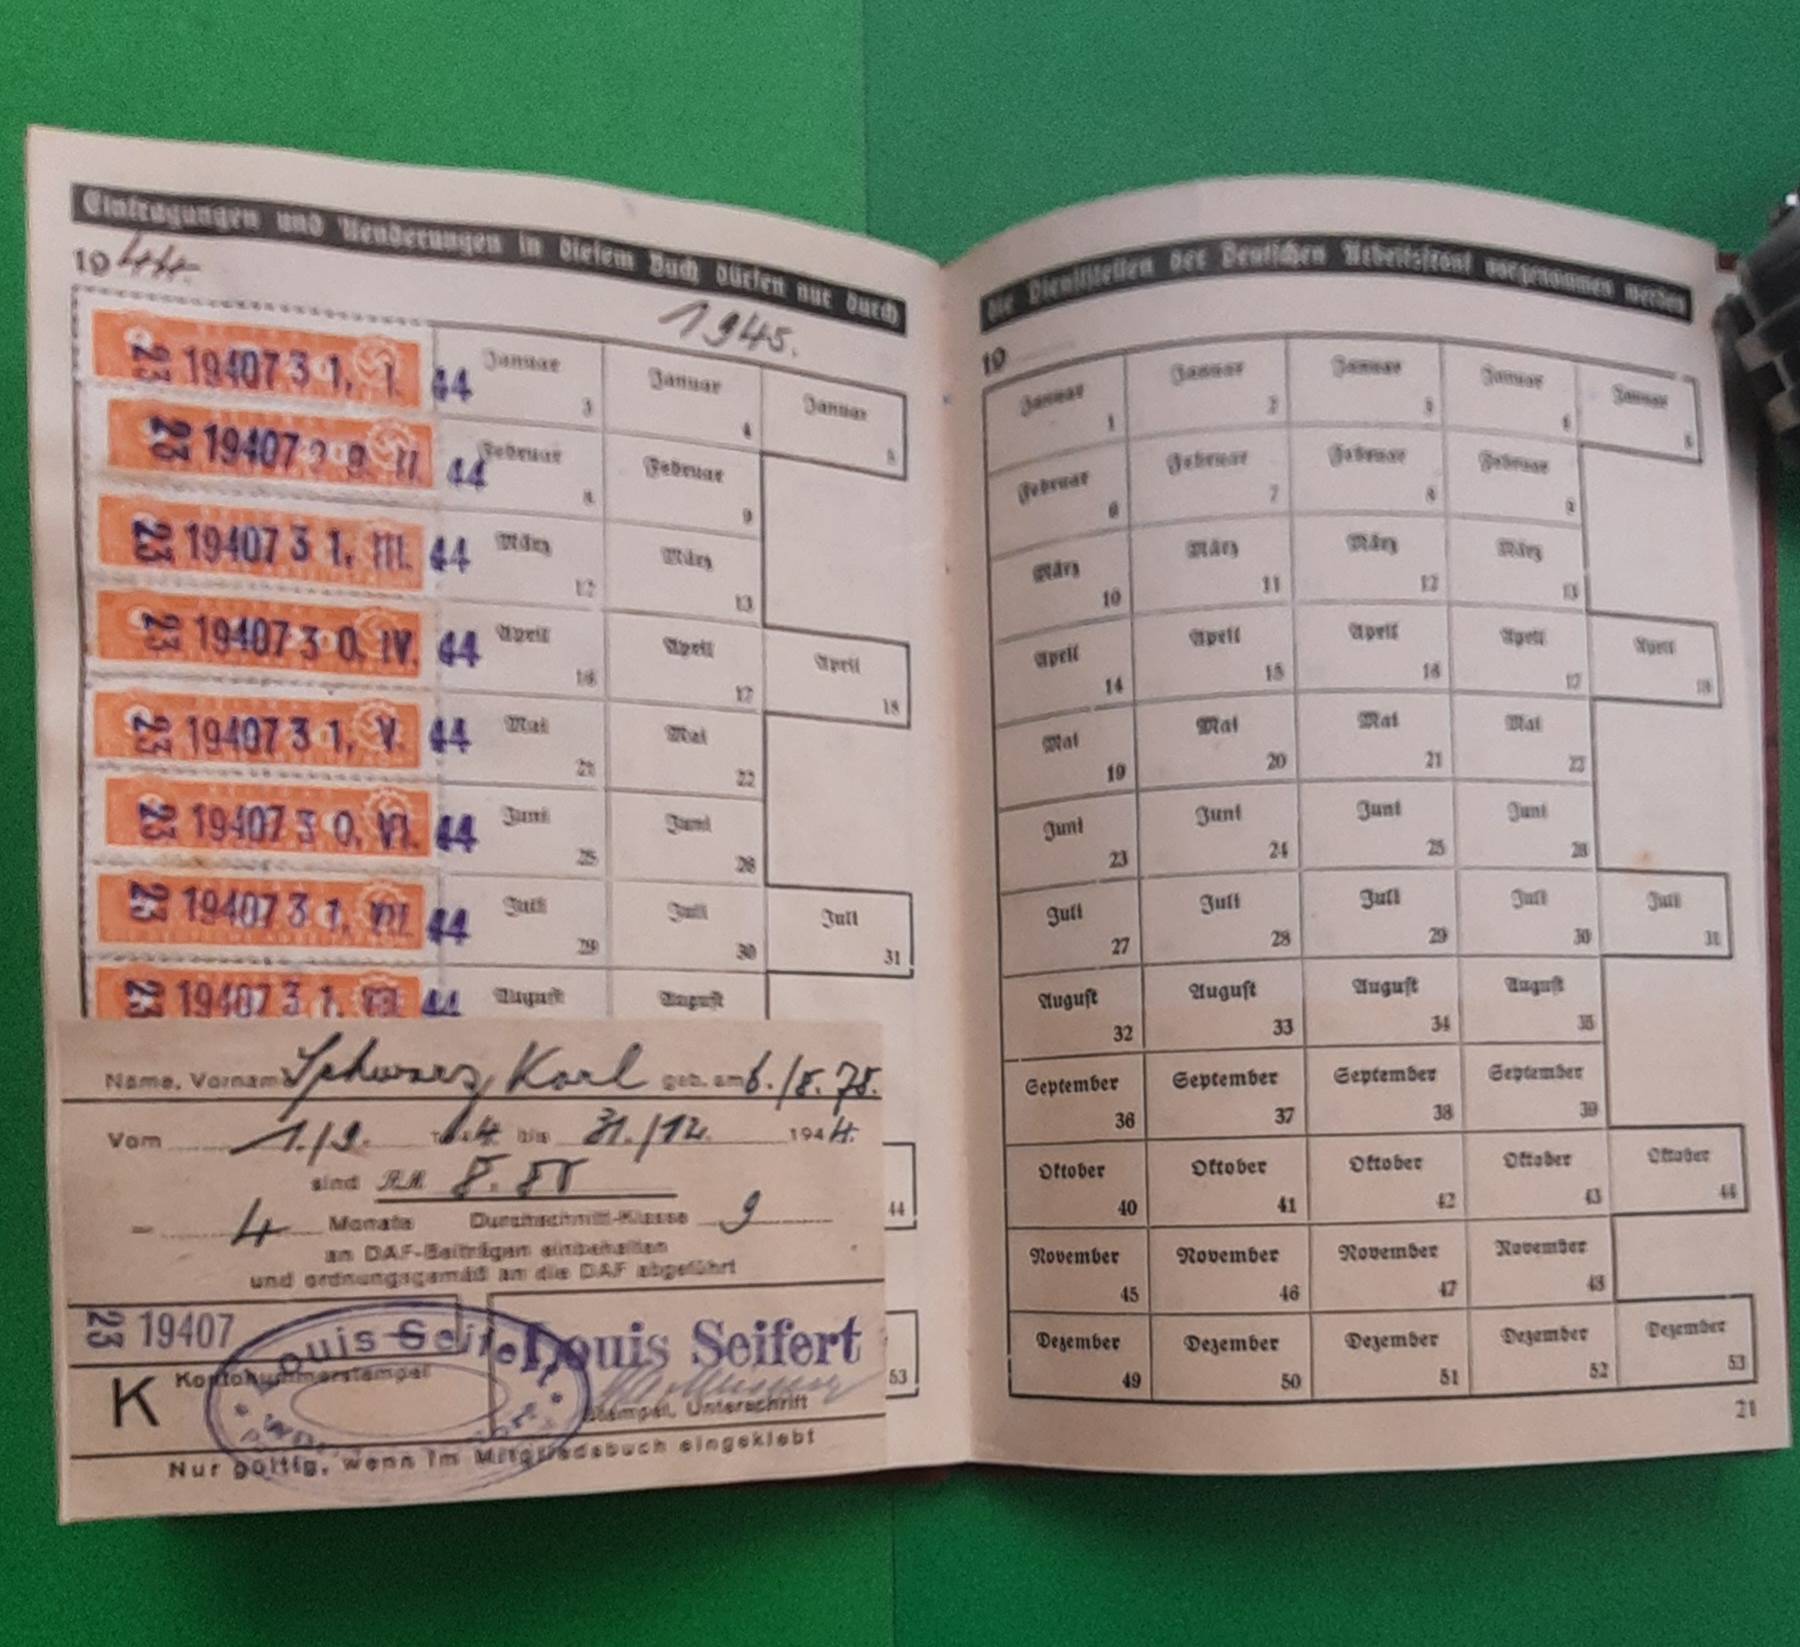 Eintragungen und Aenderungen in diesem Buch dürfen nur durch
1944.
1945.
23 19407 3 1. I. 44 Januar 3 Januar 4 Januar 5
23 19407 2 9. II 44 Februar 8 Februar 9
23 19407 3 1. III. 44 März 12 März 13
23 19407 3 0. IV. 44 April 16 April 17 April 18
23 19407 3 1. V. 44 Mai 21 Mai 22
23 19407 3 0. VI. 44 Juni 25 Juni 26
23 19407 3 1. VII 44 Juli 29 Juli 30 Juli 31
23 19407 3 1. VIII 44 August August
Name, Vorname Schwarz, Karl geb. am 6./8.78.
Vom 1./9. bis 31./12. 1944.
sind RM
4 Monate Durchschnitt-Klasse 9
an DAF-Beiträgen einbehalten
und ordnungsgemäß an die DAF abgeführt
23 19407
Louis Seifert
Louis Seifert
Kontonummerstempel
K
Stempel, Unterschrift
Nur gültig, wenn im Mitgliedsbuch eingeklebt
44
53
die Dienststellen der Deutschen Arbeitsfront vorgenommen werden
19
Januar 1 Januar 2 Januar 3 Januar 4 Januar 5
Februar 6 Februar 7 Februar 8 Februar 9
März 10 März 11 März 12 März 13
April 14 April 15 April 16 April 17 April 18
Mai 19 Mai 20 Mai 21 Mai 22
Juni 23 Juni 24 Juni 25 Juni 26
Juli 27 Juli 28 Juli 29 Juli 30 Juli 31
August 32 August 33 August 34 August 35
September 36 September 37 September 38 September 39
Oktober 40 Oktober 41 Oktober 42 Oktober 43 Oktober 44
November 45 November 46 November 47 November 48
Dezember 49 Dezember 50 Dezember 51 Dezember 52 Dezember 53
21